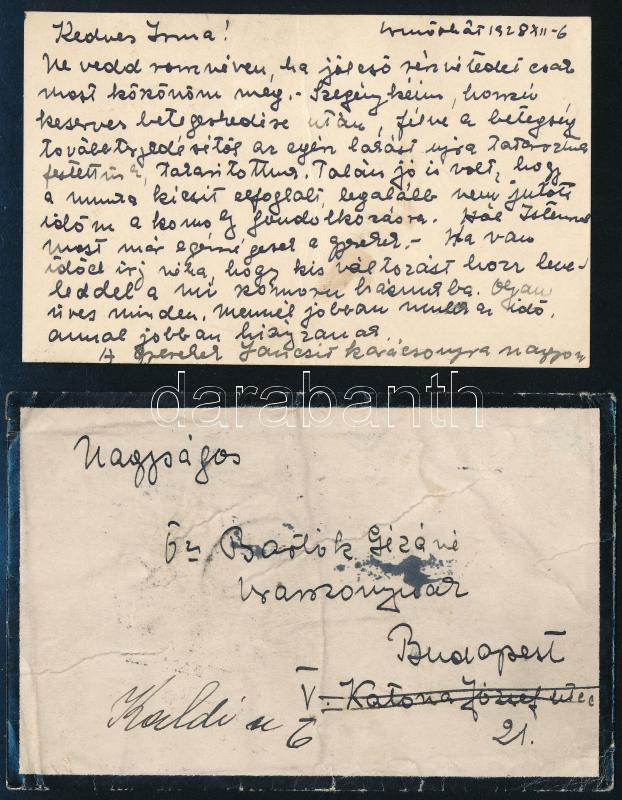 Kedves Irma! 1928 XII-6
Ne vedd rossz néven, ha jóleső részvétedet csak
most köszönöm meg. - Szegénykéim, hosszú
keserves betegeskedése után, félve a betegség
továbbterjedésétől az egész lakást ujra tataroztuk
festettük, takarítottuk. Talán jó is volt, hogy
a munka kicsit elfoglalt, legalább nem jutott
időm a komoly gondolkozásra. Hál Istennek
most már egészségesek a gyerekek. - Ha van
időd írj néha, hogy kis változást hozz leve-
leddel a mi szomorú házunkba. Olyan
üres minden, mennél jobban mulik az idő,
annál jobban hiányzanak.
A gyerekek Jancsit karácsonyra nagyon
darabanth
Nagyságos
Dr Bartók Gézáné
urasszonynak
Budapest
V. Katona József utca
21.
Káldi u 6